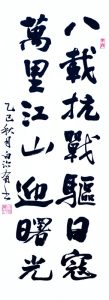 八載抗戰驅日寇
萬里江山迎曙光
乙巳秋月